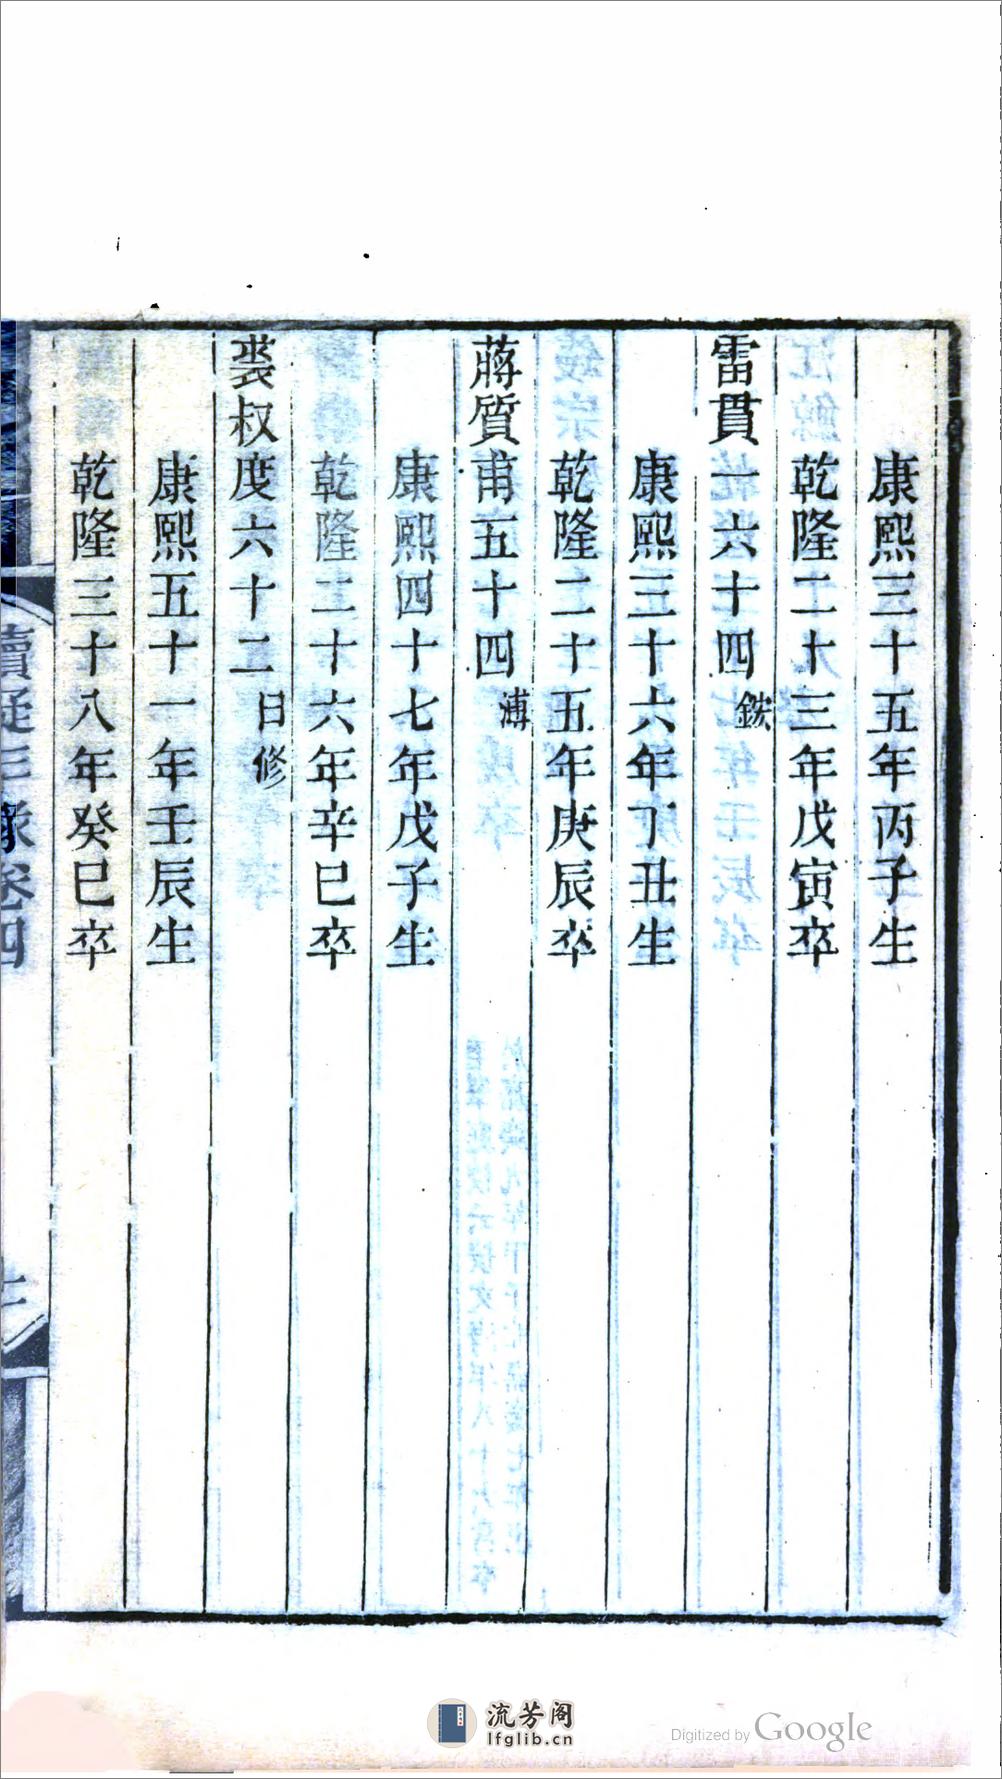 康熙三十五年丙子生
乾隆二十三年戊寅卒
雷貫一六十四 鋐
康熙三十六年丁丑生
乾隆二十五年庚辰卒
蔣質甫五十四 溥
康熙四十七年戊子生
乾隆二十六年辛巳卒
裘叔度六十二 曰修
康熙五十一年壬辰生
乾隆三十八年癸巳卒
續疑年錄卷四
三
流芳阁
lfglib.cn
Digitized by Google